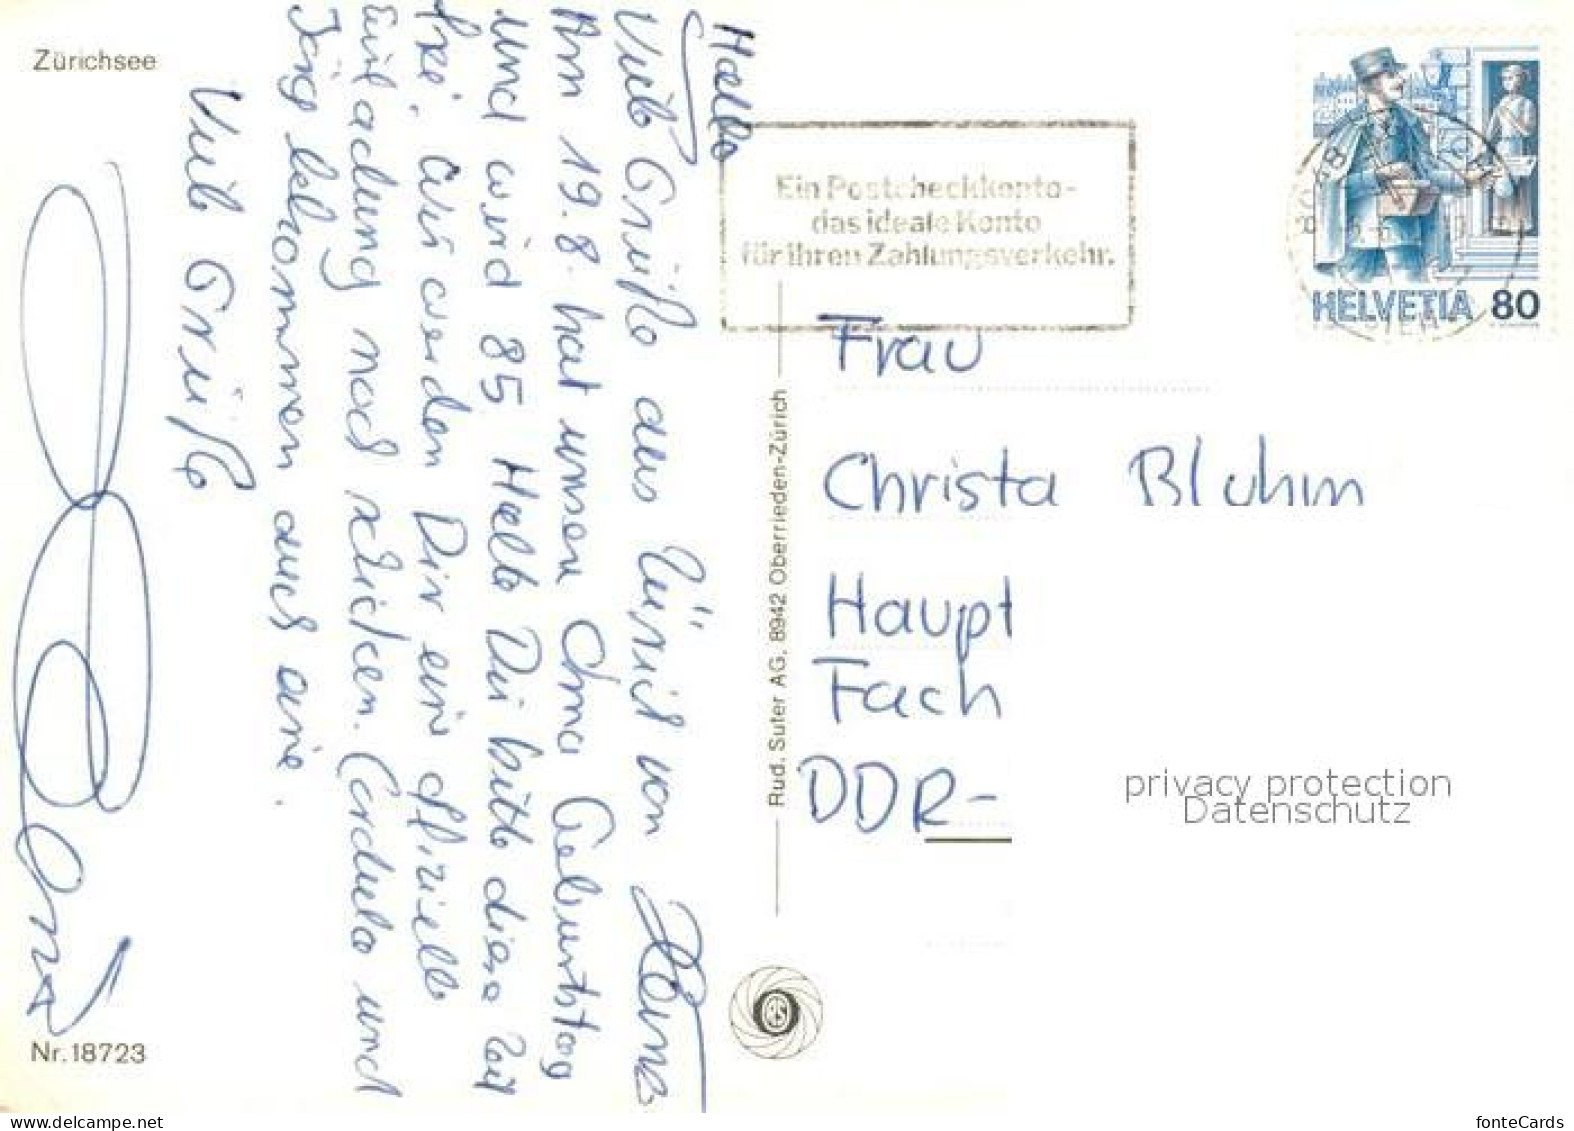 Zürichsee
Hallo
Viele Grüße aus Zürich von
Am 19.8. hat unsere Oma Geburtstag
und wird 85. Halte Dir bitte diese Zeit
frei, wir werden Dir eine offizielle
Einladung noch schicken. Carlo und
Jörg bekommen auch eine.
Viele Grüße
Nr. 18723
Rud. Suter AG, 8942 Oberrieden-Zürich
Ein Postcheckkonto-
das ideale Konto
für Ihren Zahlungsverkehr.
HELVETIA 80
8048
Frau
Christa Bluhm
Haupt
Fach
DDR-
privacy protection
Datenschutz
www.delcampe.net
fonteCards